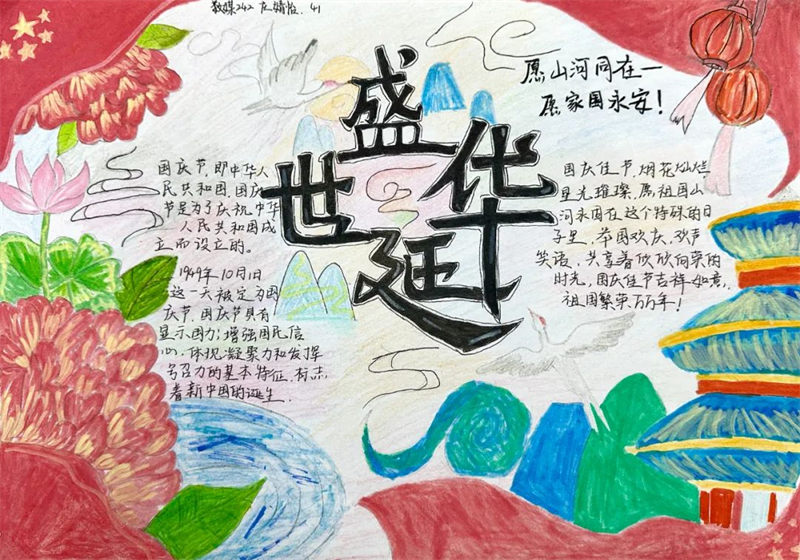 数媒242 41
愿山河同在一
愿家国永安！
盛世华延
国庆节,即中华人
民共和国,国庆
节是为了庆祝中华
人民共和国成
立而设立的。
1949年10月1日
这一天被定为国
庆节,国庆节具有
显示国力;增强国民信
心,体现凝聚力和发挥
号召力的基本特征,标志
着新中国的诞生.
国庆佳节,烟花灿烂
星光璀璨,愿祖国山
河永固在这个特殊的日
子里,举国欢庆,欢声
笑语,共享着欣欣向荣的
时光,国庆佳节吉祥如意,
祖国繁荣万万年!